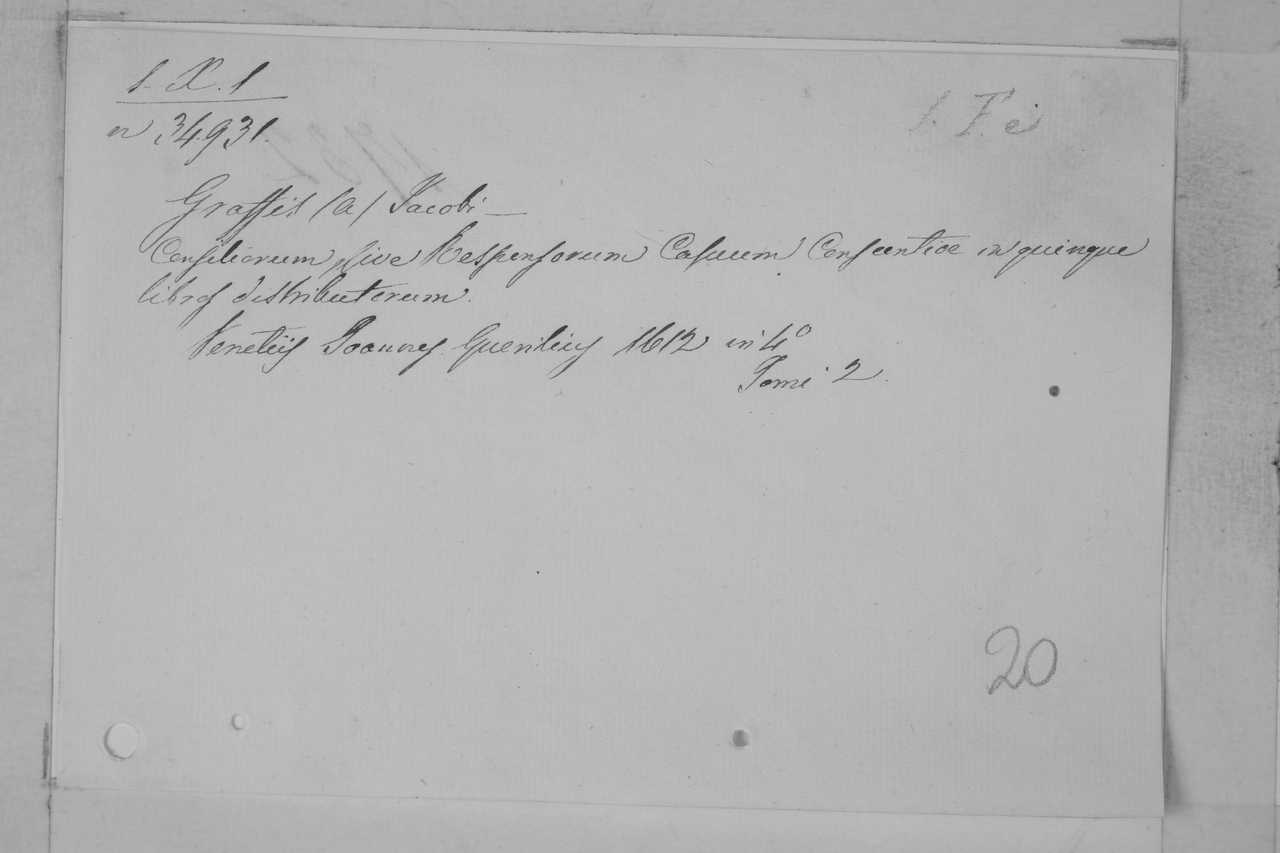 1. X. 1
n 34931.
1. F. e
Graffiis (a) Jacobi —
Consiliorum sive Responsorum Casuum Conscientiae in quinque
libros distributorum.
Venetiis Joannes Guerilius 1612 in 4º
Tomi 2.
20